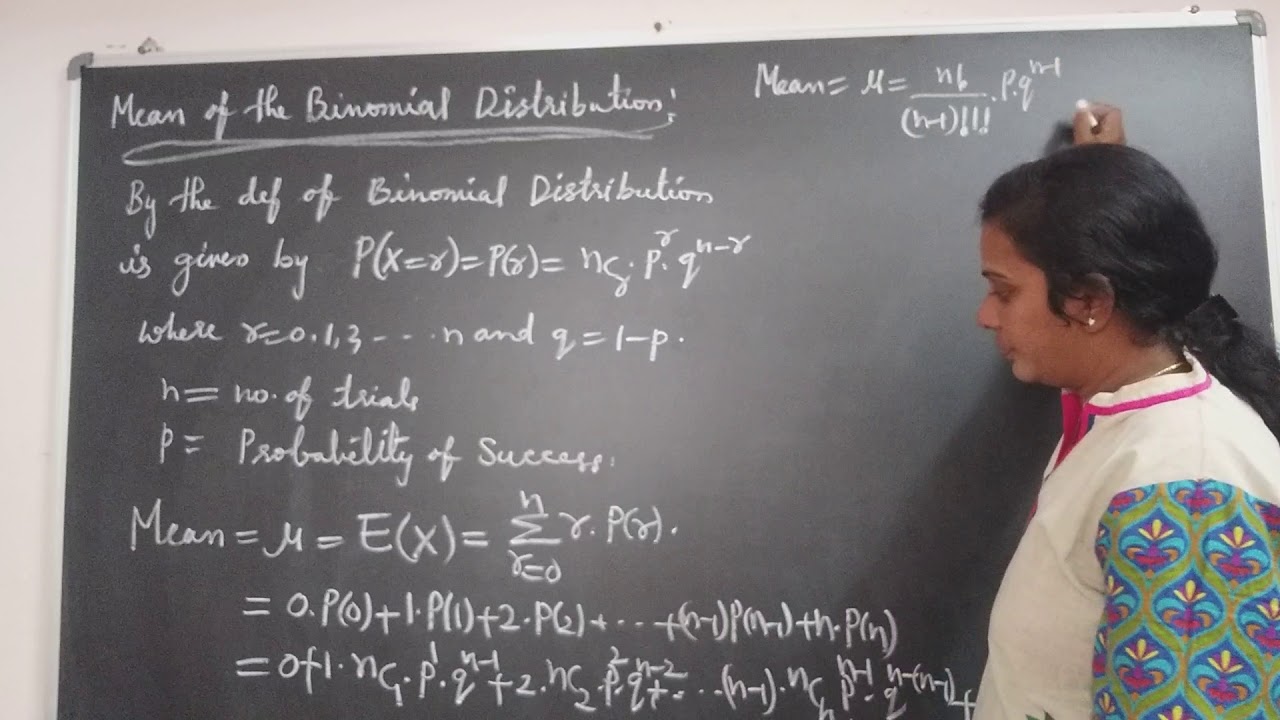 Mean of the Binomial Distribution:
By the def of Binomial Distribution
is given by P(X=r)=P(r)= nCr. p^r. q^(n-r)
where r=0.1,3 - - . . . n and q = 1-p.
n = no. of trials
p = Probability of Success.
Mean = μ = E(X) = Σ_(r=0)^n r. P(r).
= 0.P(0)+1.P(1)+2.P(2)+ . . . +(n-1)P(n-1)+n.P(n)
= 0+1. nC1. p^1. q^(n-1) + 2. nC2. p^2. q^(n-2) + - . . . (n-1). nC p^(n-1). q^(n-(n-1)) +
Mean = μ = n!/((n-1)!1!) . p.q^(n-1)